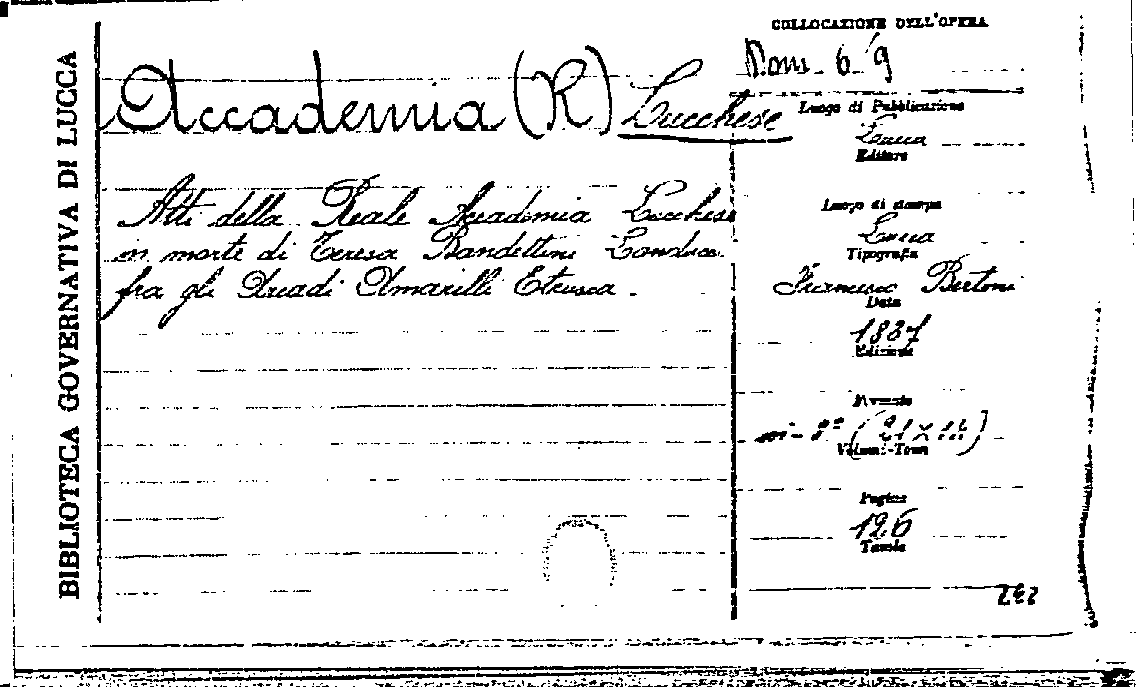 BIBLIOTECA GOVERNATIVA DI LUCCA
Accademia (R) Lucchese
Atti della Reale Accademia Lucchese
in morte di Teresa Bandettini Landucci
fra gli Arcadi Amarilli Etrusca.
COLLOCAZIONE DELL'OPERA
6 9
Luogo di Pubblicazione
Lucca
Editore
Luogo di stampa
Lucca
Tipografia
Francesco Bertoni
Data
1837
Edizione
Formato
in-8° (21×14)
Volumi-Tomi
Pagine
126
Tavole